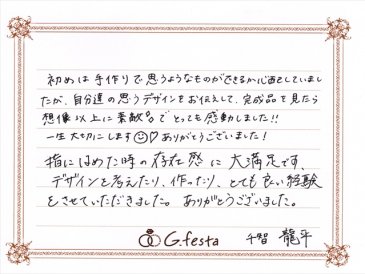 初めは手作りで思うようなものができるか心配していまし
たが、自分達の思うデザインをお伝えして、完成品を見たら
想像以上に素敵でとっても感動しました!!
一生大切にします☺♡ ありがとうございました!
指にはめた時の存在感に大満足です。
デザインを考えたり、作ったり、とても良い経験
をさせていただきました。ありがとうございました。
G.festa
千智 龍平